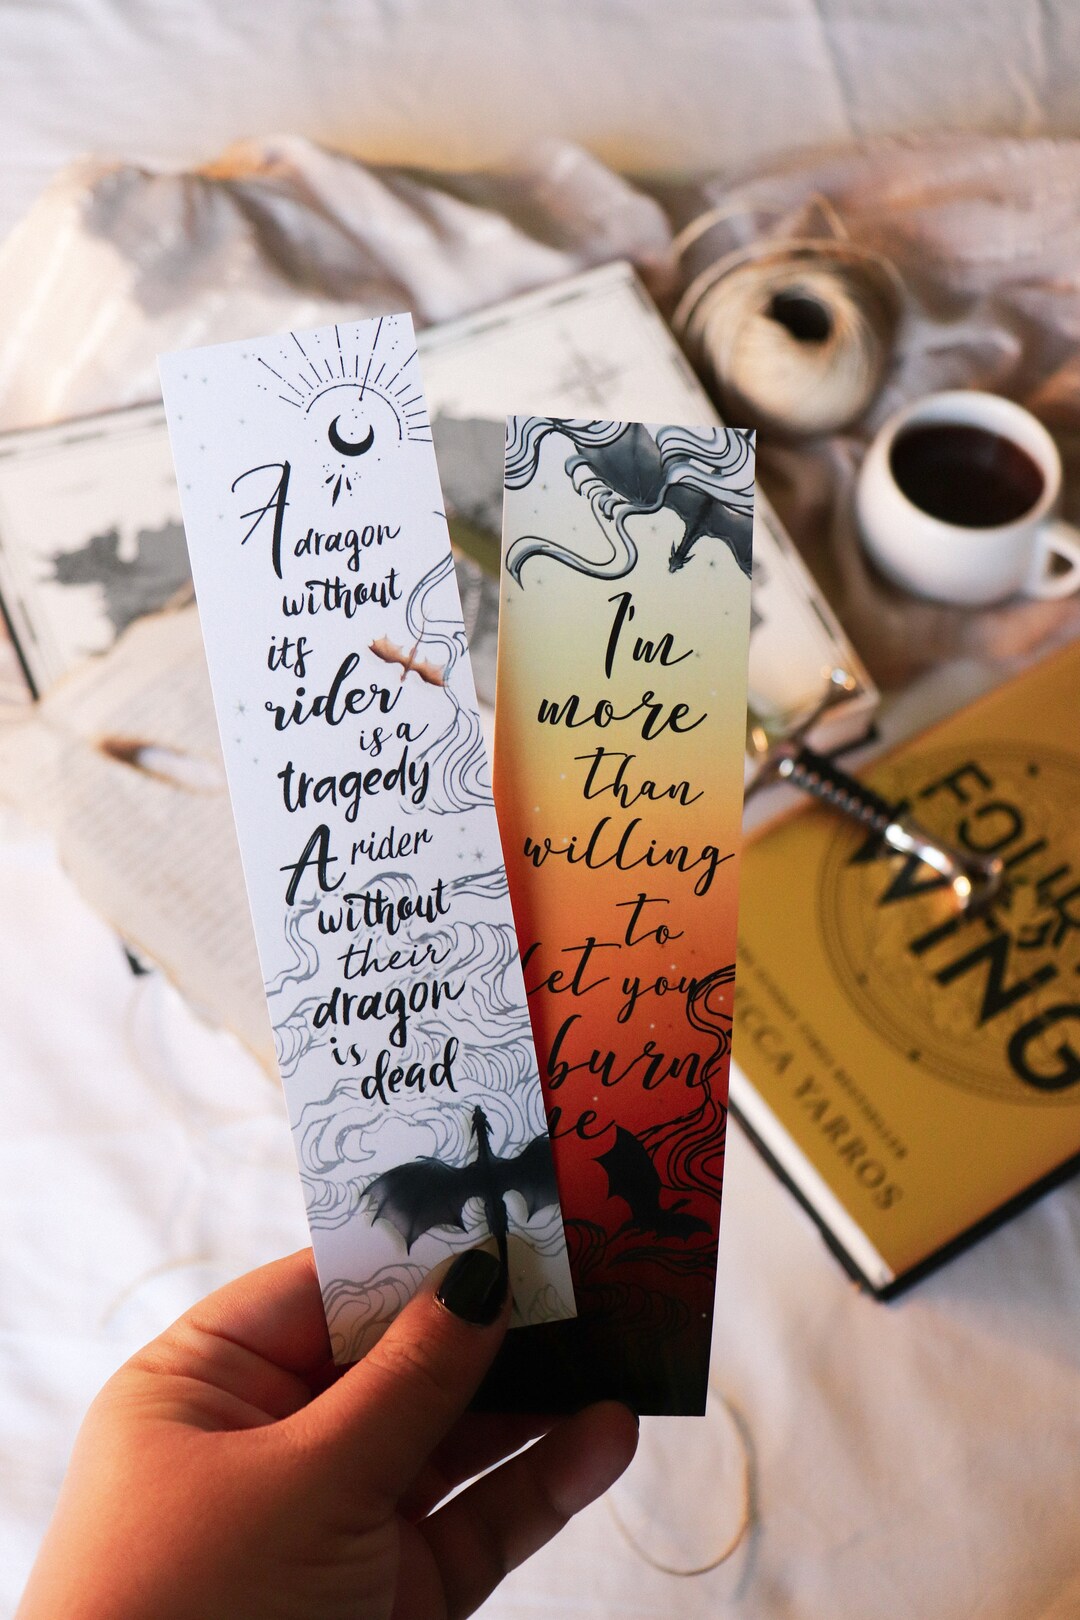 A
dragon
without
its
rider
is a
tragedy
A rider
without
their
dragon
is
dead
I'm
more
than
willing
to
let you
burn
WING
YARROS